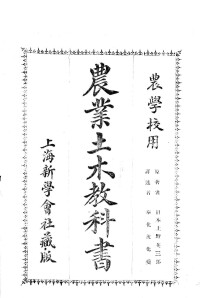 農學校用
原著者 日本上野英三郎
譯述者 奉化
農業土木教科書
上海新學會社藏版